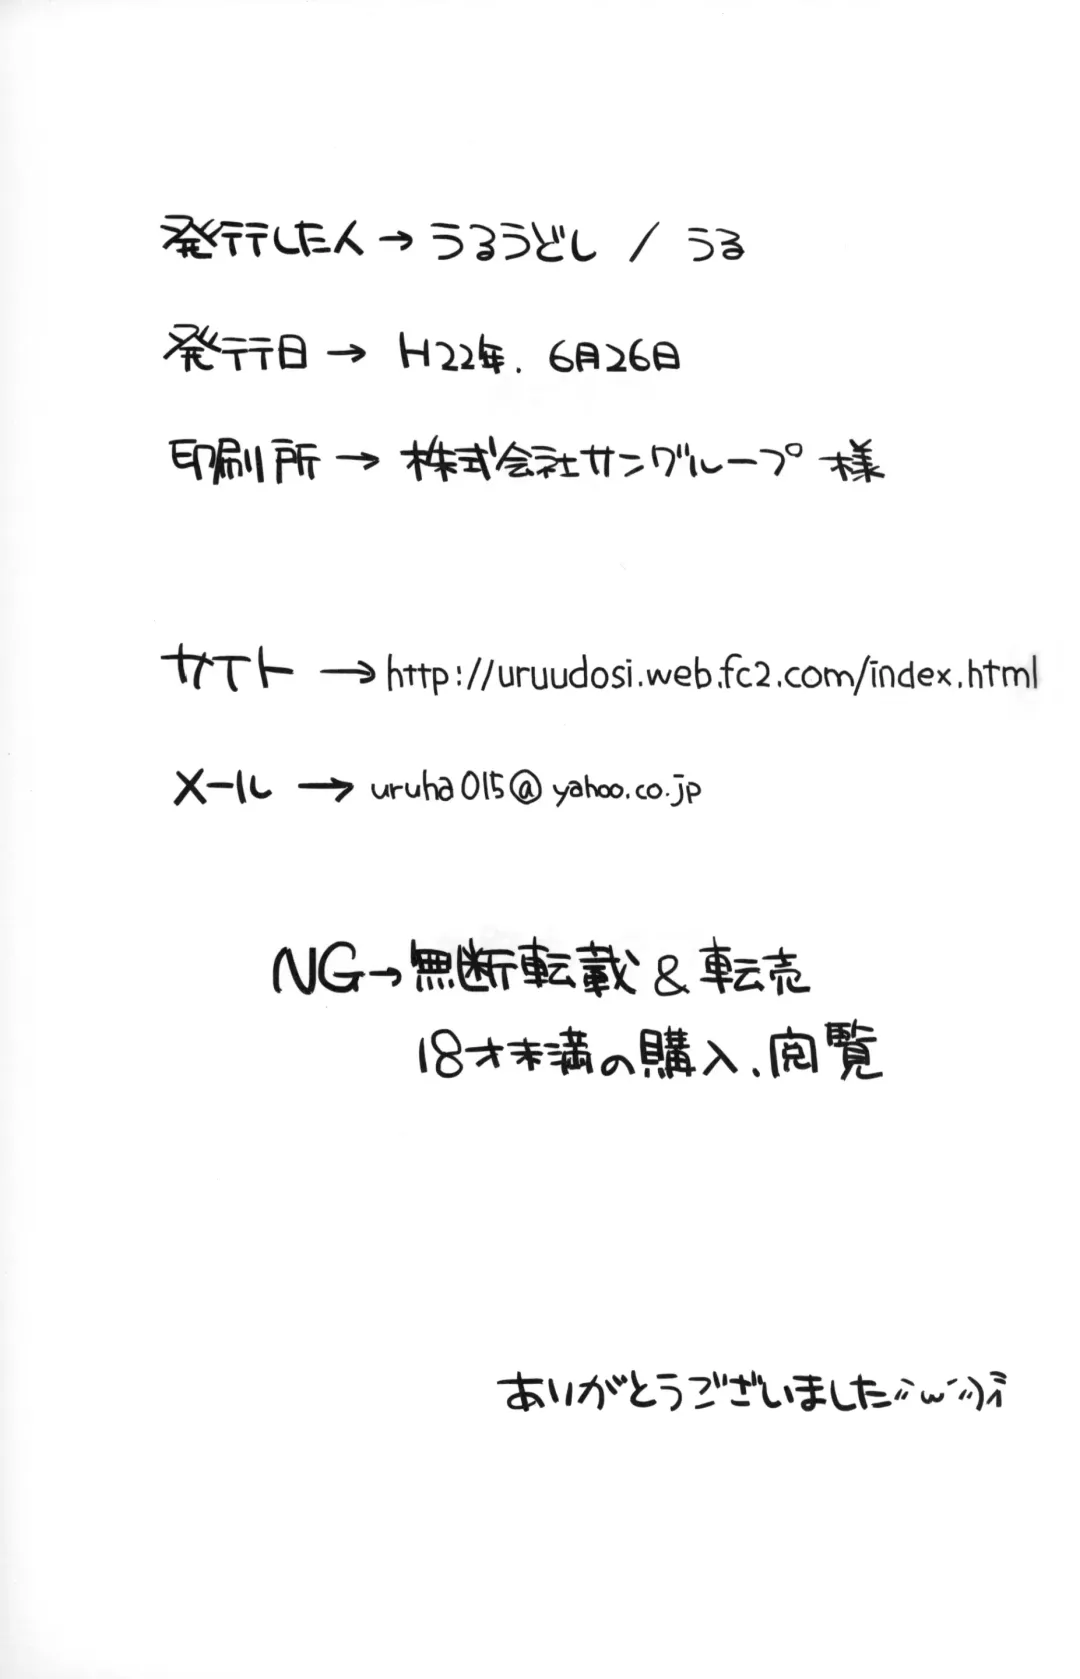 発行した人→うるうどし / うる
発行日→ H22年. 6月26日
印刷所→ 株式会社サングループ 様
サイト →http://uruudosi.web.fc2.com/index.html
メール → uruha015@yahoo.co.jp
NG→無断転載&転売
18才未満の購入.閲覧
ありがとうございました